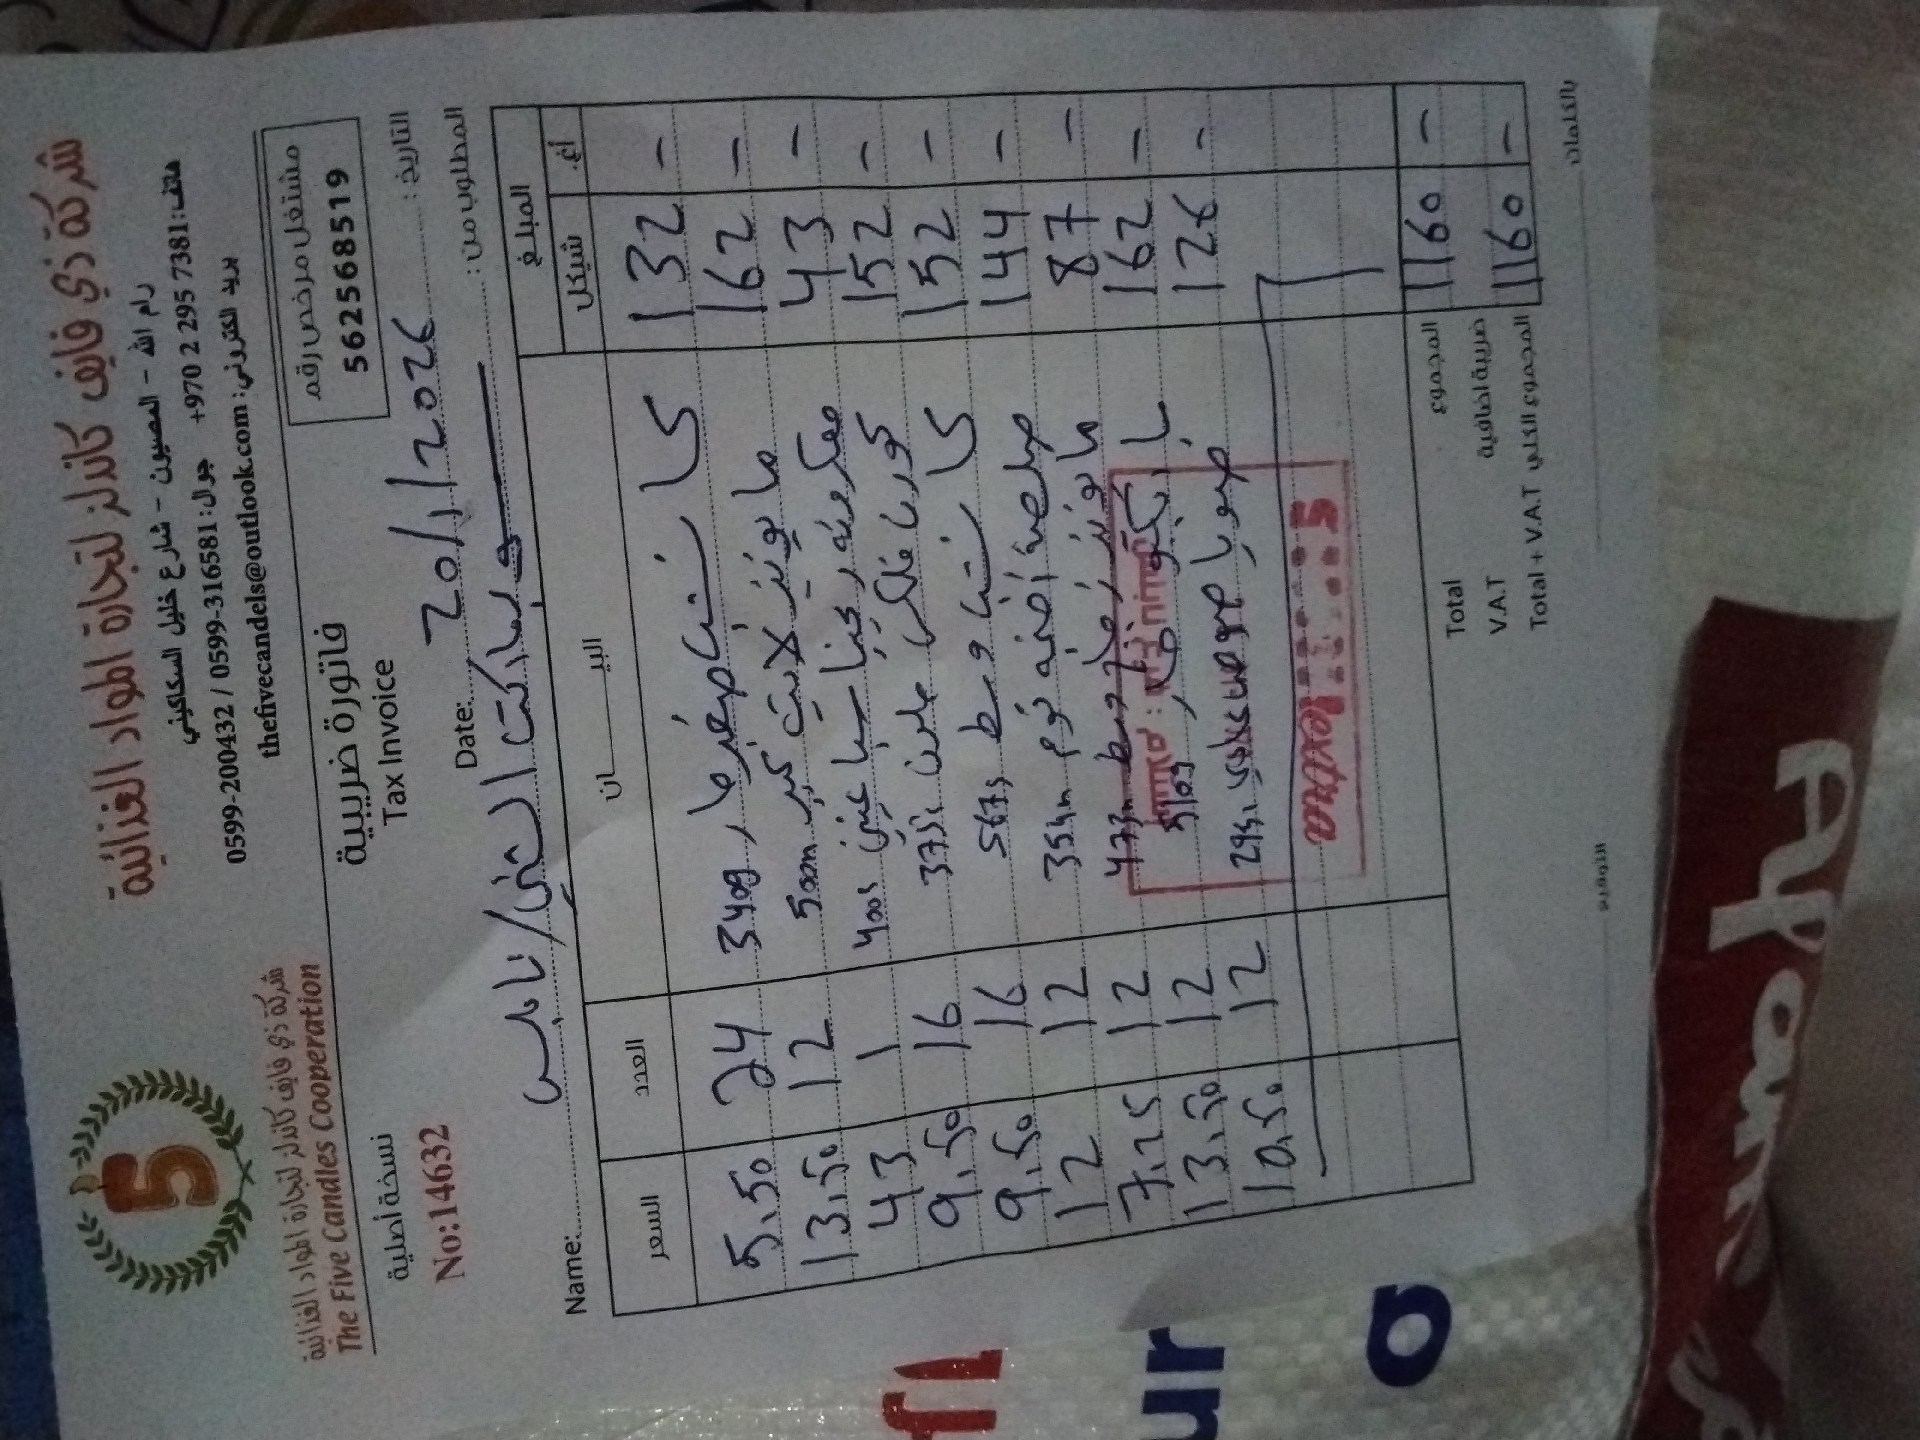 شركة ذي فايف كاندلز لتجارة المواد الغذائية
رام الله - المصيون - شارع خليل السكاكيني
هاتف: 7381 295 2 970+ جوال: 0599-3166581 / 0599-200432
بريد الكتروني: thefivecandels@outlook.com
5
شركة ذي فايف كاندلز لتجارة المواد الغذائية
The Five Candles Cooperation
مشتغل مرخص رقم
562568519
فاتورة ضريبية
Tax Invoice
نسخة أصلية
No:14632
التاريخ: 20/1/2026 Date:
المطلوب من: ماركت / نابلس Name:
المبلغ البيــــان العدد السعر
شيكل أغ.
132 - كاتشب 340g 24 5.50
162 - مايونيز لايت كبير 500m 12 13.50
43 - معكرونة 400g 1 43
152 - 375g 16 9.50
152 - كاتشب وسط 567g 16 9.50
144 - صلصة 354m 12 12
87 - مايونيز وسط 473m 12 7.25
162 - باربكيو 510g 12 13.50
126 - صويا صوص 294g 12 10.50
5
extra
1160 - المجموع Total
ضريبة اضافية V.A.T
1160 - المجموع الكلي Total + V.A.T
بالكلمات
التوقيع
fl
ur
a
Afan